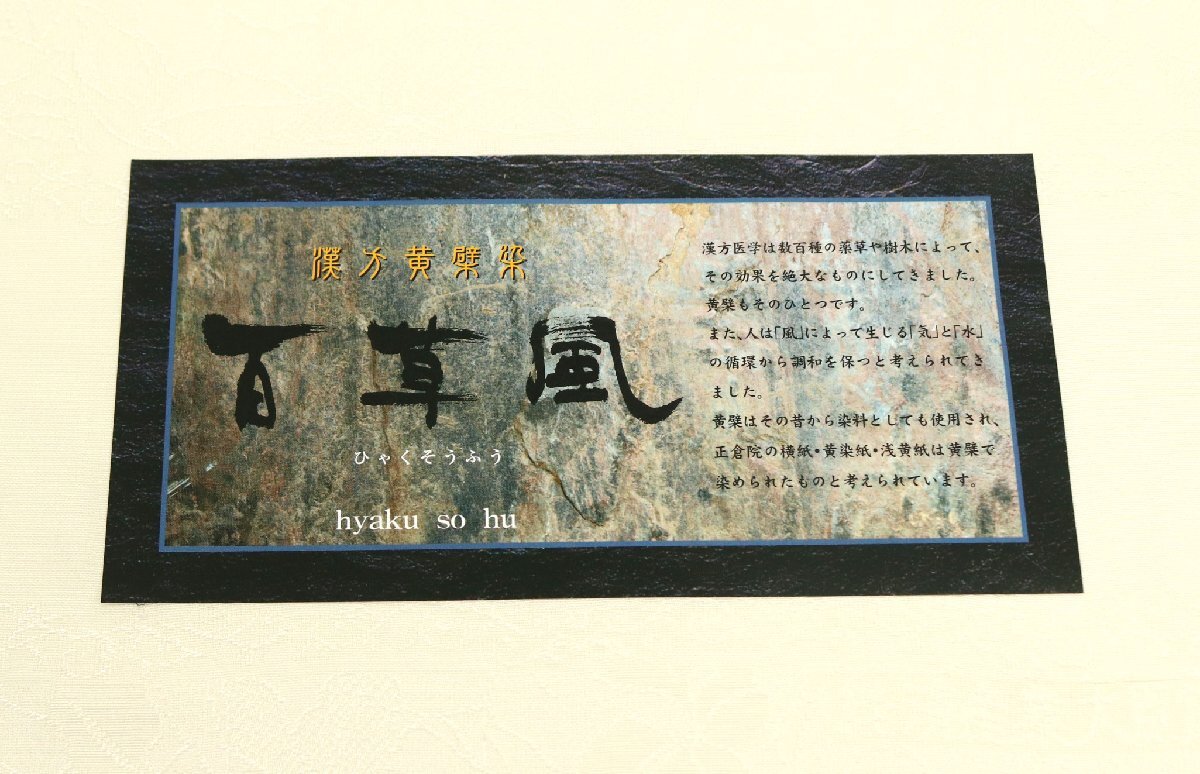 漢方黄檗染
百草風
ひゃくそうふう
hyaku so hu
漢方医学は数百種の薬草や樹木によって、
その効果を絶大なものにしてきました。
黄檗もそのひとつです。
また、人は｢風｣によって生じる｢気｣と｢水｣
の循環から調和を保つと考えられてき
ました。
黄檗はその昔から染料としても使用され、
正倉院の横紙・黄染紙・浅黄紙は黄檗で
染められたものと考えられています。